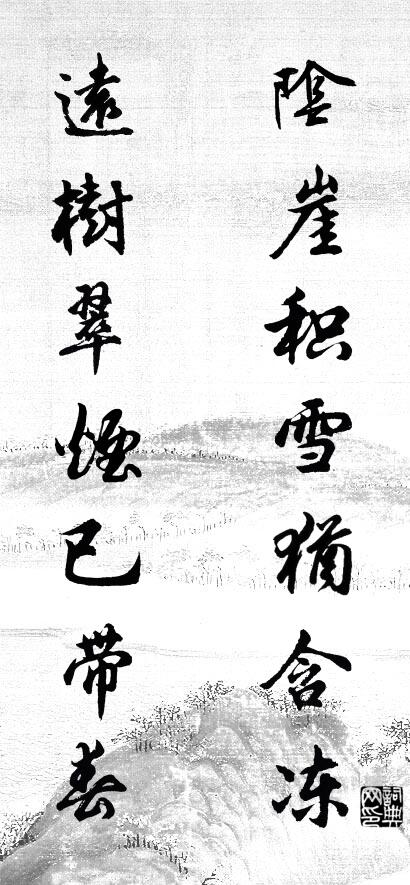 陰崖积雪猶含冻
遠樹翠煙已帶春
詞典網